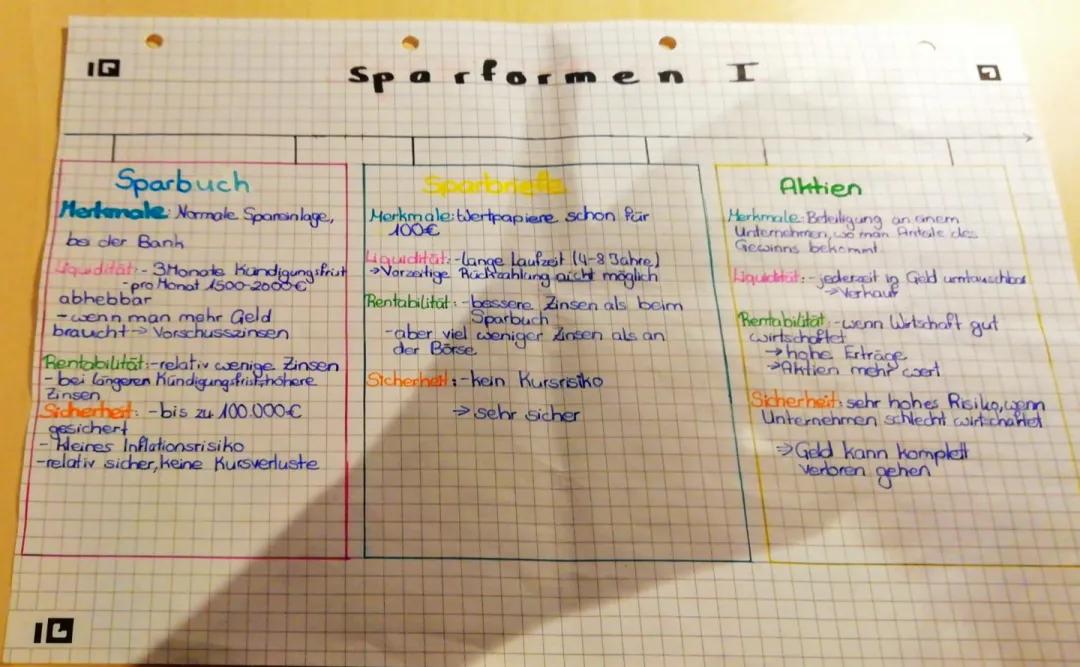 Sparformen I
Sparbuch
Merkmale: Normale Spareinlage,
bei der Bank
Liquidität: - 3 Monate Kündigungsfrist
- pro Monat 1500-2000€
abhebbar
- wenn man mehr Geld
braucht → Vorschusszinsen
Rentabilität: - relativ wenige Zinsen
- bei längeren Kündigungsfrist höhere
Zinsen
Sicherheit: - bis zu 100.000€
gesichert
- kleines Inflationsrisiko
- relativ sicher, keine Kursverluste
Sparbriefe
Merkmale: Wertpapiere schon für
100€
Liquidität: - lange Laufzeit (4-8 Jahre)
→ Vorzeitige Rückzahlung nicht möglich
Rentabilität: - bessere Zinsen als beim
Sparbuch
- aber viel weniger Zinsen als an
der Börse
Sicherheit: - kein Kursrisiko
⇒ sehr sicher
Aktien
Merkmale: Beteiligung an einem
Unternehmen, wo man Anteile des
Gewinns bekommt
Liquidität: - jederzeit in Geld umtauschbar
→ Verkauf
Rentabilität: - wenn Wirtschaft gut
wirtschaftet
→ hohe Erträge
→ Aktien mehr wert
Sicherheit: sehr hohes Risiko, wenn
Unternehmen schlecht wirtschaftet
⇒ Geld kann komplett
verloren gehen